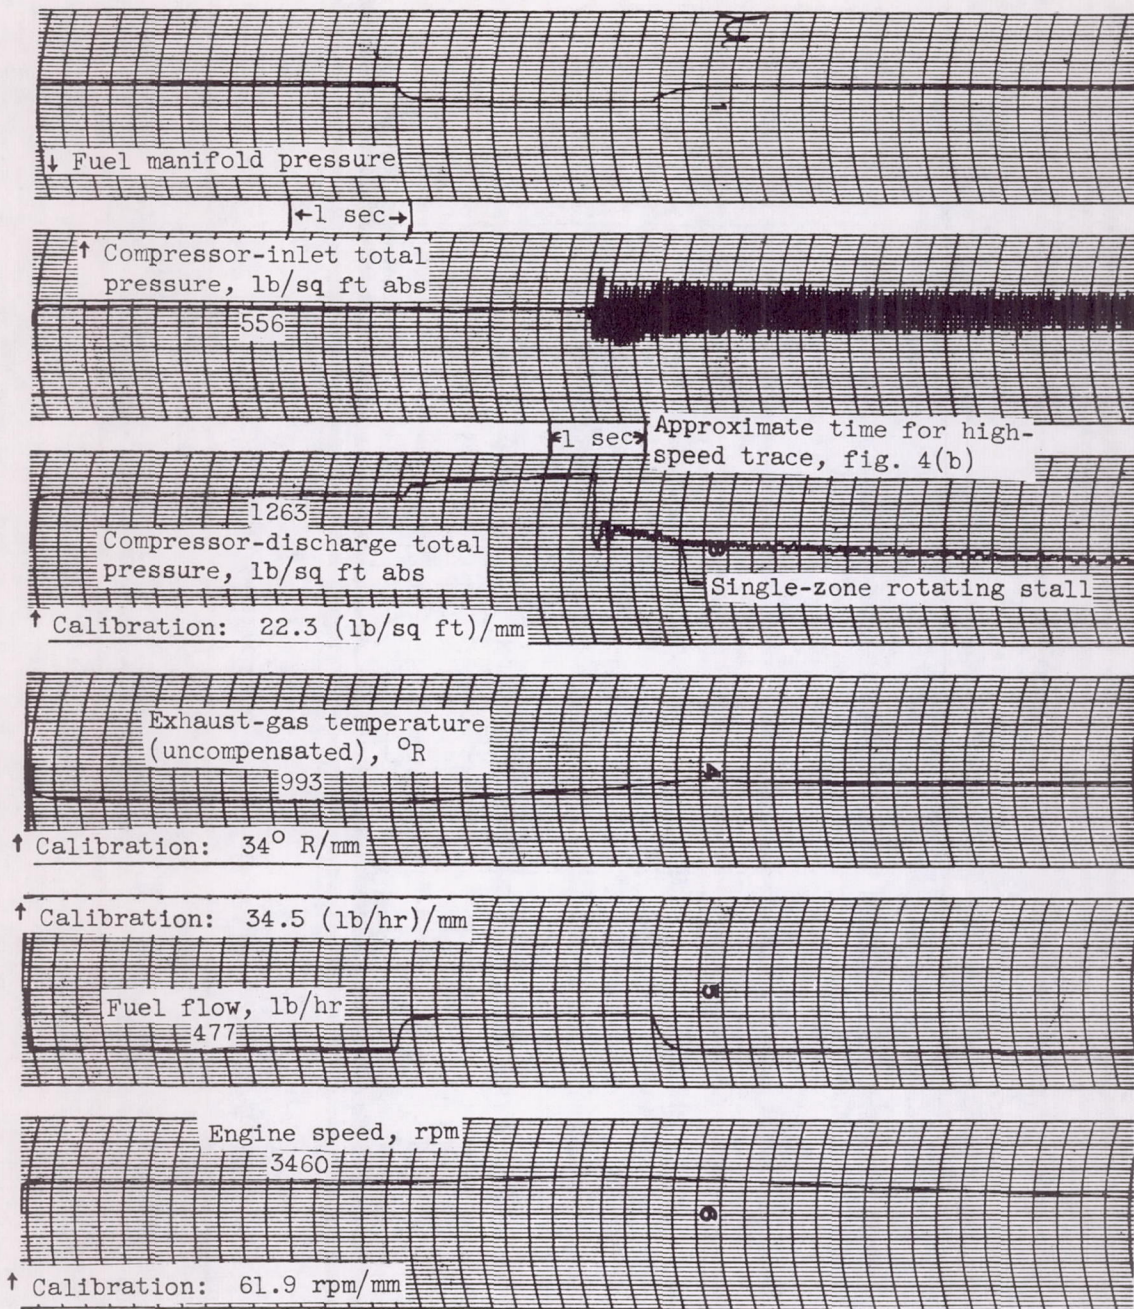 1
↓ Fuel manifold pressure
←1 sec→
↑ Compressor-inlet total
pressure, lb/sq ft abs
556
←1 sec→
Approximate time for high-
speed trace, fig. 4(b)
1263
Compressor-discharge total
pressure, lb/sq ft abs
Single-zone rotating stall
↑ Calibration: 22.3 (lb/sq ft)/mm
Exhaust-gas temperature
(uncompensated), °R
993
4
↑ Calibration: 34° R/mm
↑ Calibration: 34.5 (lb/hr)/mm
5
Fuel flow, lb/hr
477
Engine speed, rpm
3460
6
↑ Calibration: 61.9 rpm/mm